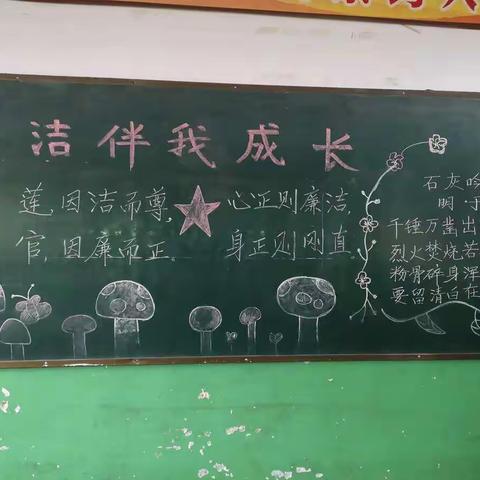 洁伴我成长
莲,因洁而尊,
官,因廉而正。
心正则廉洁,
身正则刚直,
石灰吟
明·于
千锤万凿出
烈火焚烧若
粉骨碎身浑
要留清白在